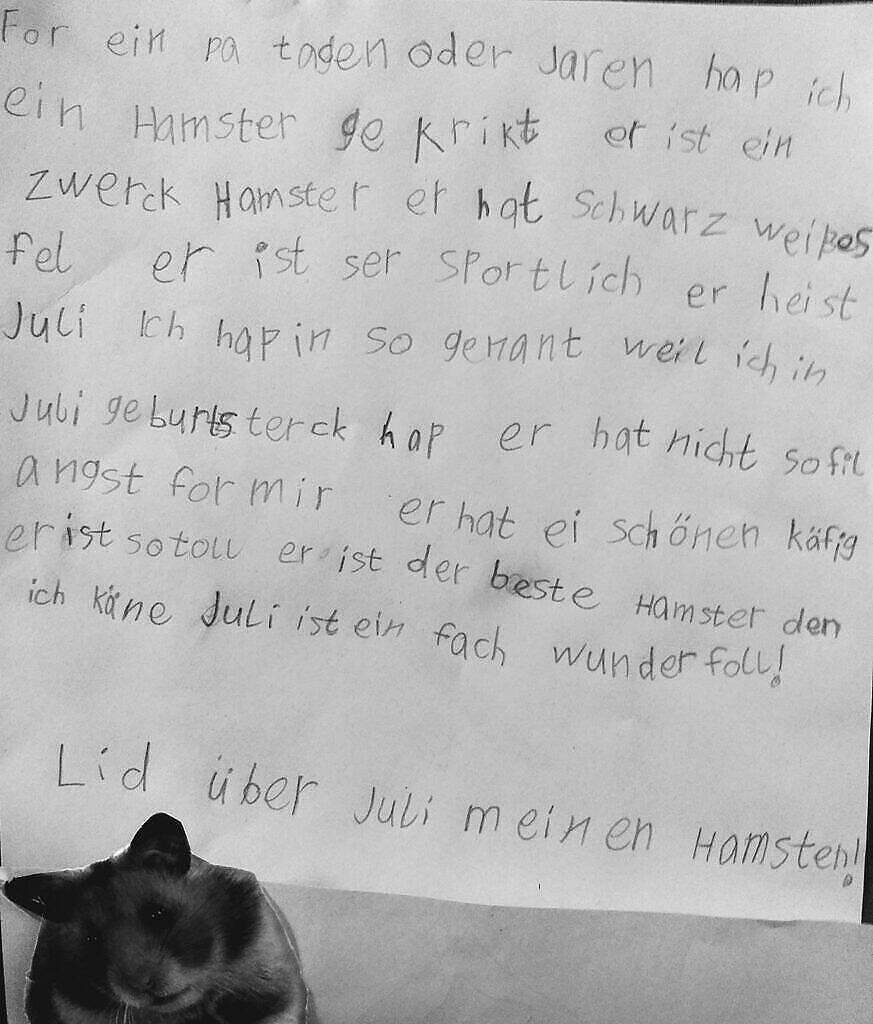 For ein pa tagen oder Jaren hap ich
ein Hamster ge krikt er ist ein
zwerck Hamster er hat schwarz weißes
fel er ist ser sportlich er heist
Juli Ich hap in so genant weil ich in
Juli geburtsterck hap er hat nicht so fil
angst for mir er hat ei schönen käfig
er ist so toll er ist der beste Hamster den
ich käne Juli ist ein fach wunderfoll!
Lid über Juli meinen Hamsten!